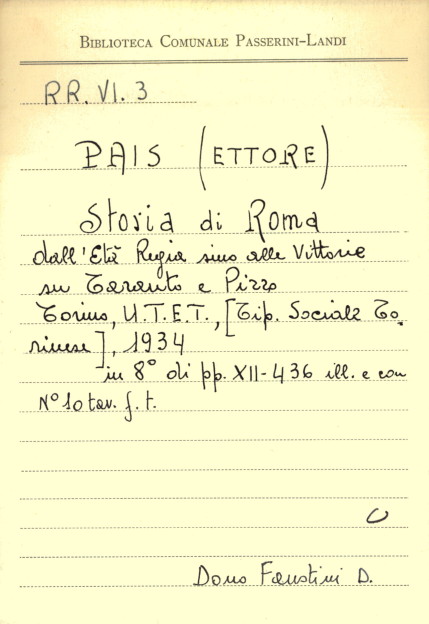 BIBLIOTECA COMUNALE PASSERINI-LANDI
RR. VI. 3
PAIS (ETTORE)
Storia di Roma
dall'Età Regia sino alle Vittorie
su Taranto e Pirro
Torino, U.T.E.T., [Tip. Sociale To.
rinese], 1934
in 8° di pp. XII-436 ill. e con
N° 10 tav. f. t.
C
Dono Faustini D.